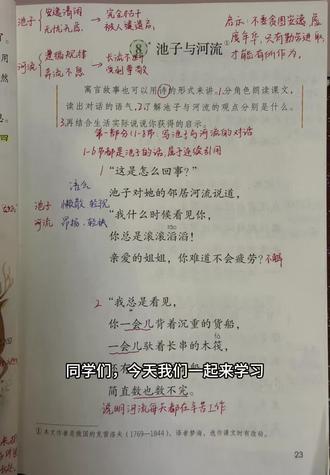 池子
安逸清闲
无忧无虑
完全枯干
被人遗忘
河流
遵循规律
奔流不息
长流不断
受到尊敬
启示：不要贪图安逸，虚
度年华，只有勤奋进取
才能有所作为。
8 池子与河流
①
寓言故事也可以用诗的形式来讲。1.分角色朗读课文，
读出对话的语气。2.了解池子与河流的观点分别是什么。
3.再结合生活实际说说你获得的启示。
第一部分(1-8节)：写池子与河流的对话
1-6节都是池子的话，属于连续引用
1 “这是怎么回事？”
池子对她的邻居河流说道，
池子
懒散 轻视
河流
昂扬
“我什么时候看见你，
你总是滚滚滔滔！
亲爱的姐姐，你难道不会疲劳？不解
2 “我总是看见，
你一会儿背着沉重的货船，
一会儿驮着长串的木筏，
同学们，今天我们一起来学习
简直数也数不完。
说明河流每天都在辛苦工作
①本文作者是俄国的克雷洛夫（1769—1844），译者梦海，选作课文时有改动。
23